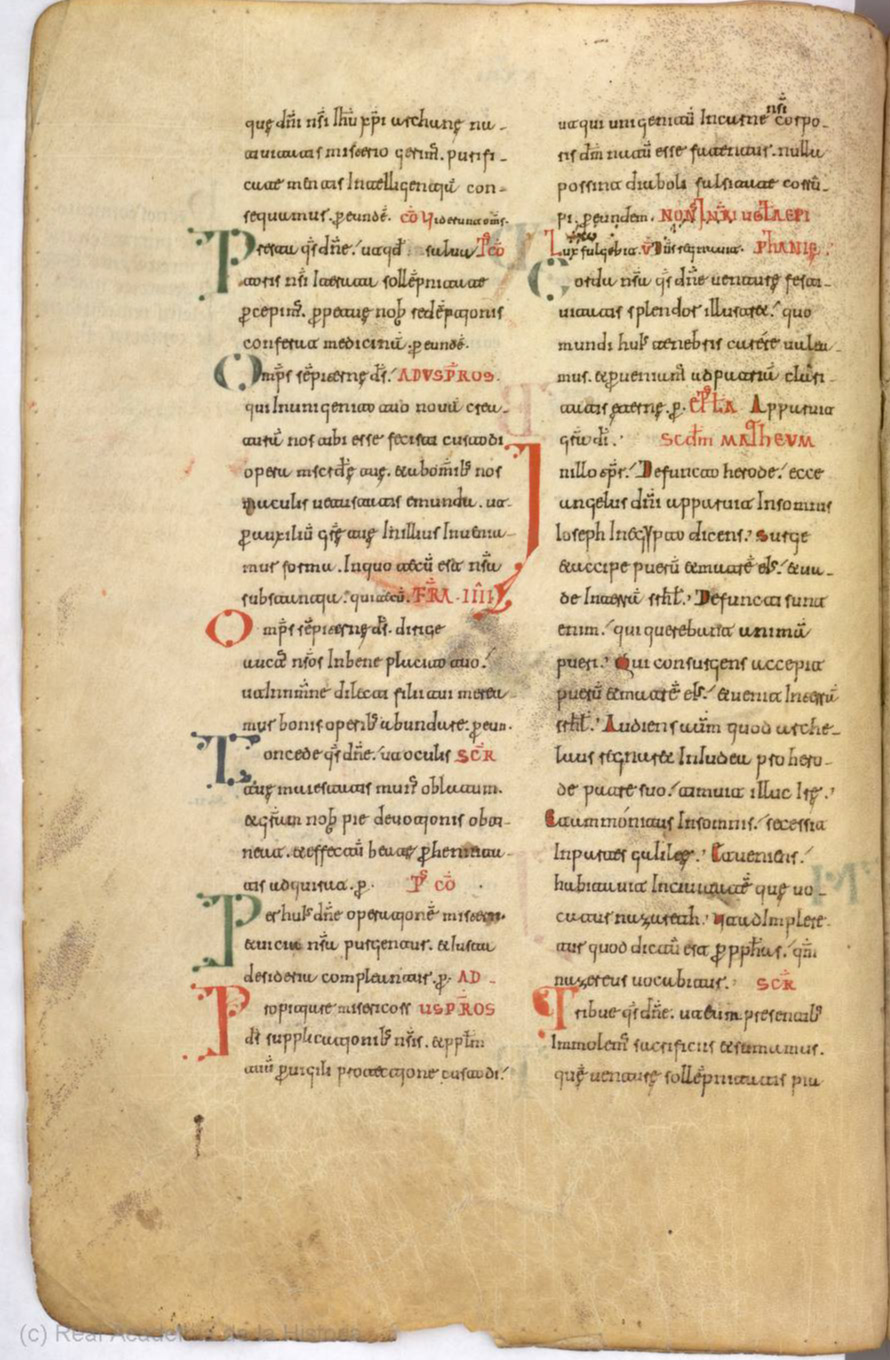 quę dn̄i nr̄i ihū xp̄i archanę na-
tiuitatis misterio gerim̄. purifi-
cate mentis intelligentiā con-
sequamur. ꝑ eundē. cō Uiderunt om̄s.
Presta q̄s dn̄e. ut qd̄ saluat P̄ cō
toris nr̄i iterata sollēpnitate
ꝑcepim̄. ꝑpetuę nob̄ redēptionis
conferat medicinā. ꝑ eundē.
Omp̄s sēpiternę ds̄. AD VSPR̄OS.
qui in unigenito tuo nouā crea-
turā nos tibi esse fecisti custodi
opera misc̄dię tuę. & ab om̄ib; nos
maculis uetustatis emunda. ut
ꝑ auxiliū gr̄ę tuę in illius inuenia-
mur forma. in quo tecū est nr̄a
substantia. qui tecū. FR̄A. IIII
Omp̄s sēpiternę ds̄. dirige
actus nr̄os in beneplacito tuo.
ut in nomine dilecti filii tui merea-
mur bonis operib; abundare. ꝑ eun.
Concede q̄s dn̄e. ut oculis SCR̄
tuę maiestatis mun̄ oblatum.
& gr̄am nob̄ pie deuotionis obti-
neat. & effectū beatę ꝑhennita-
tis adquirat. ꝑ. P̄ cō
Per hui; dn̄e operationē misterii.
& uicia nr̄a purgentur. & iusta
desideria compleantur. ꝑ. AD
Propiciare misericors USPR̄OS
ds̄ supplicationib; nr̄is. & pplm̄
tuū ꝑuigili protectione custodi.
ut qui unigenitū in carne nr̄i corpo-
ris dm̄ natū esse fatentur. nulla
possint diaboli falsitate corrū-
pi. ꝑ eundem. NON IAN̄RI UGLĀ EPI
Lux fulgebit. PHANIĘ.
Corda nr̄a q̄s dn̄e uenturę festi-
uitatis splendor illustret. quo
mundi hui; tenebris carere ualea-
mus. & ꝑueniam̄ ad patriā clari-
tatis ęternę. ꝑ. EPL̄A Apparuit
gr̄a di. Scdm MATHEVM
In illo tp̄r. Defuncto herode. ecce
angelus dn̄i apparuit in somnis
ioseph in egypto dicens. Surge
& accipe puerū & matrē ei;. & ua-
de in terrā isrl̄. Defuncti sunt
enim. qui querebant animā
pueri. Qui consurgens accepit
puerū & matrē ei;. & uenit in terrā
isrl̄. Audiens autem quod arche-
laus regnaret in iudea pro hero-
de patre suo. timuit illuc irę.
Et ammonitus in somnis. secessit
in partes galileę. Et ueniens.
habitauit in ciuitatē que uo-
catur nazareth. ut adimplere-
tur quod dictū est ꝑ pph̄as. qm̄
nazereus uocabitur. SCR̄
Tribue q̄s dn̄e. ut eum presentib;
immolem̄ sacrificiis & sumamus.
quę uenturę sollēpnitatis pia
(c) Real Academia de la Historia